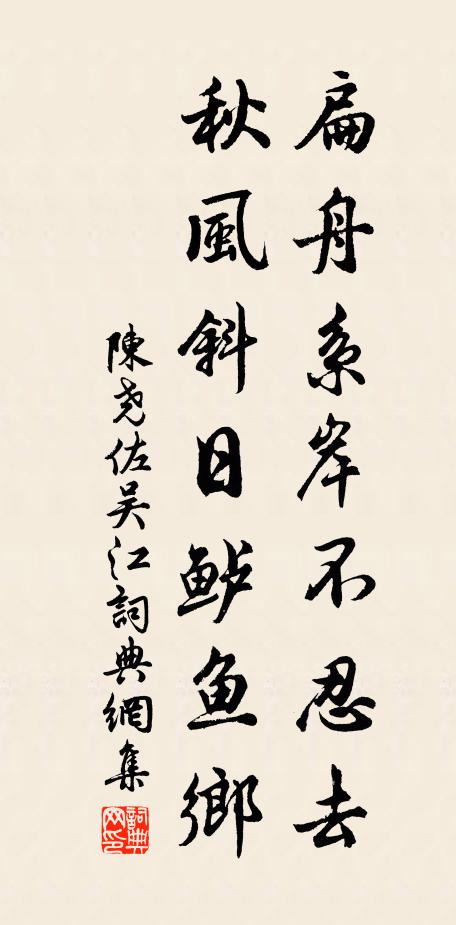 扁舟系岸不忍去
秋風斜日鲈鱼鄉
陳尧佐吴江詞典網集
詞典网印